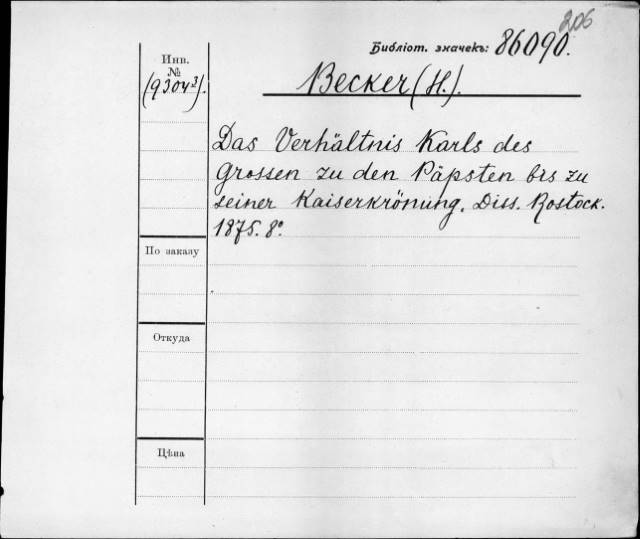 206
Библіот. значекъ: 86090.
Инв.
№
(93043).
Becker (H.).
Das Verhältnis Karls des
Grossen zu den Päpsten bis zu
seiner Kaiserkrönung. Diss. Rostock.
1875. 8º.
По заказу
Откуда
Цѣна